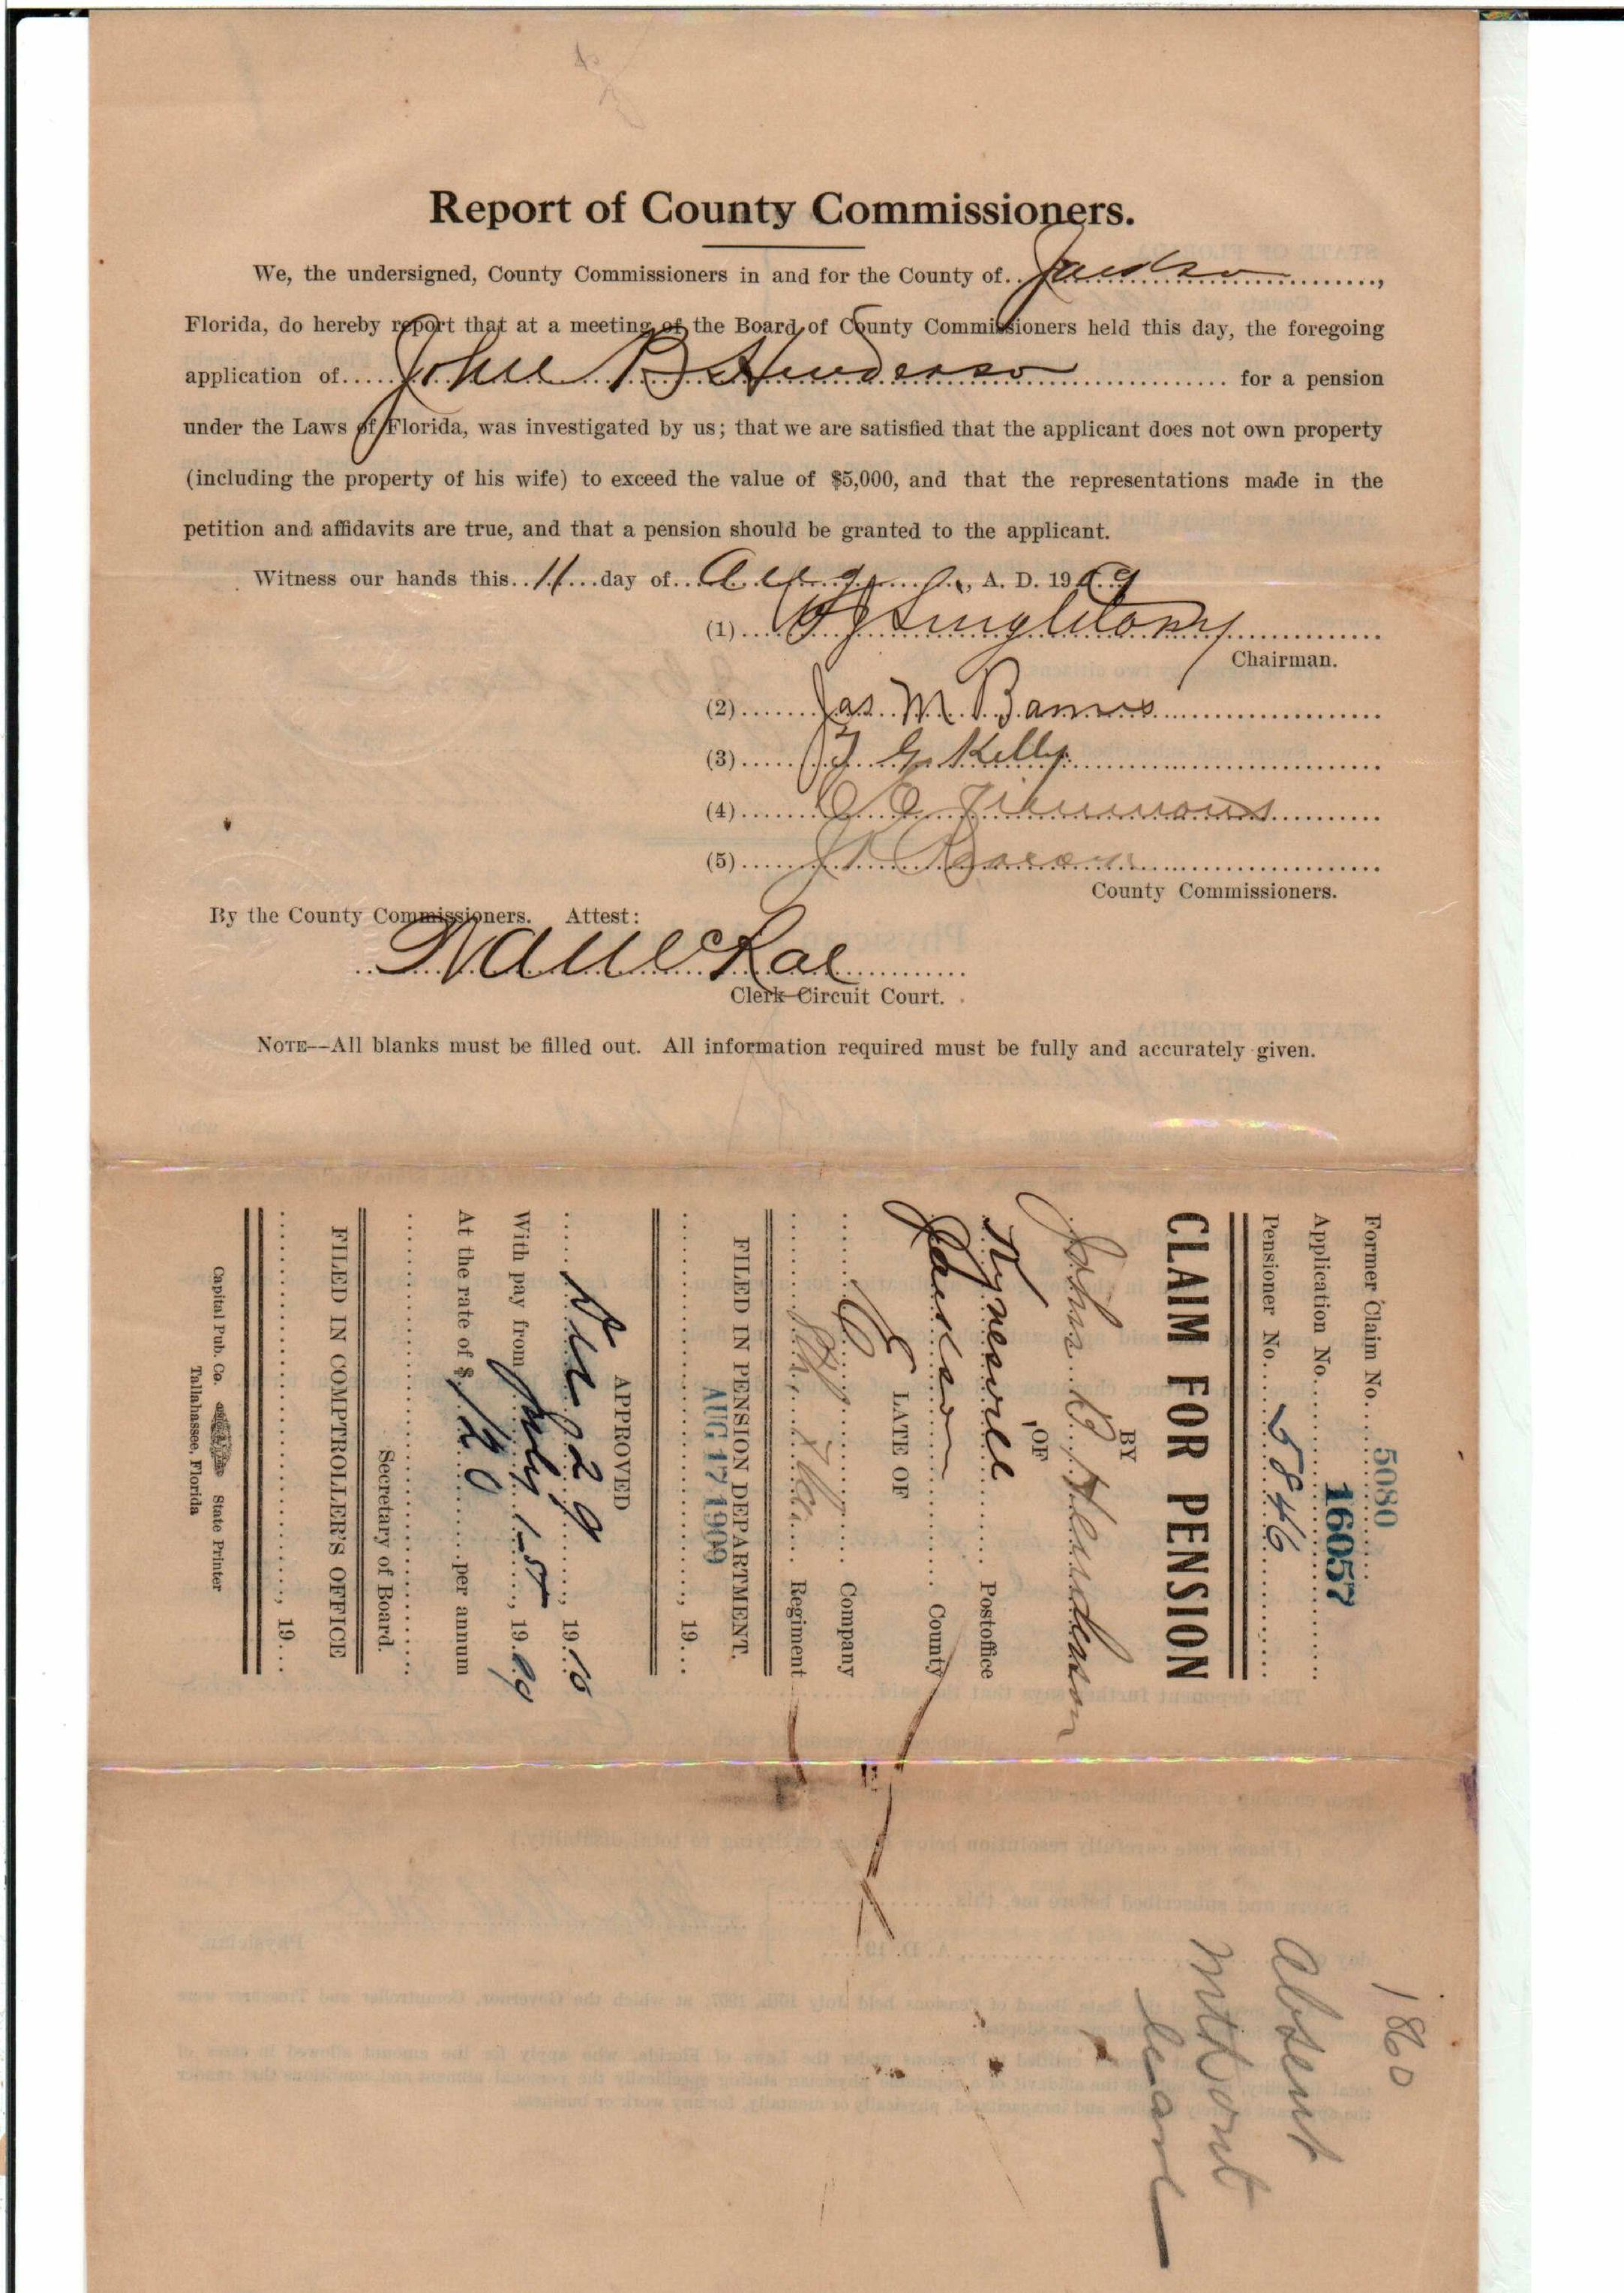 Report of County Commissioners.
We, the undersigned, County Commissioners in and for the County of Jackson,
Florida, do hereby report that at a meeting of the Board of County Commissioners held this day, the foregoing
application of John B Henderson for a pension
under the Laws of Florida, was investigated by us; that we are satisfied that the applicant does not own property
(including the property of his wife) to exceed the value of $5,000, and that the representations made in the
petition and affidavits are true, and that a pension should be granted to the applicant.
Witness our hands this 11 day of Aug, A. D. 1909
(1) Singletary
Chairman.
(2) Jas M. Barnes
(3) G. Kelly
(4)
(5)
County Commissioners.
By the County Commissioners. Attest:
Clerk Circuit Court.
NOTE--All blanks must be filled out. All information required must be fully and accurately given.
Former Claim No. 5080
Application No. 16057
Pensioner No. 5846
CLAIM FOR PENSION
BY
John B Henderson
OF
Kynesville Postoffice
Jackson County
LATE OF
Company
8th Regiment
FILED IN PENSION DEPARTMENT.
AUG 17 1909
, 19
APPROVED
29, 1910
With pay from July 15, 1909
At the rate of $ 120 per annum
Secretary of Board.
FILED IN COMPTROLLER'S OFFICE
, 19
Capital Pub. Co. State Printer
Tallahassee, Florida
1860
absent
without
leave